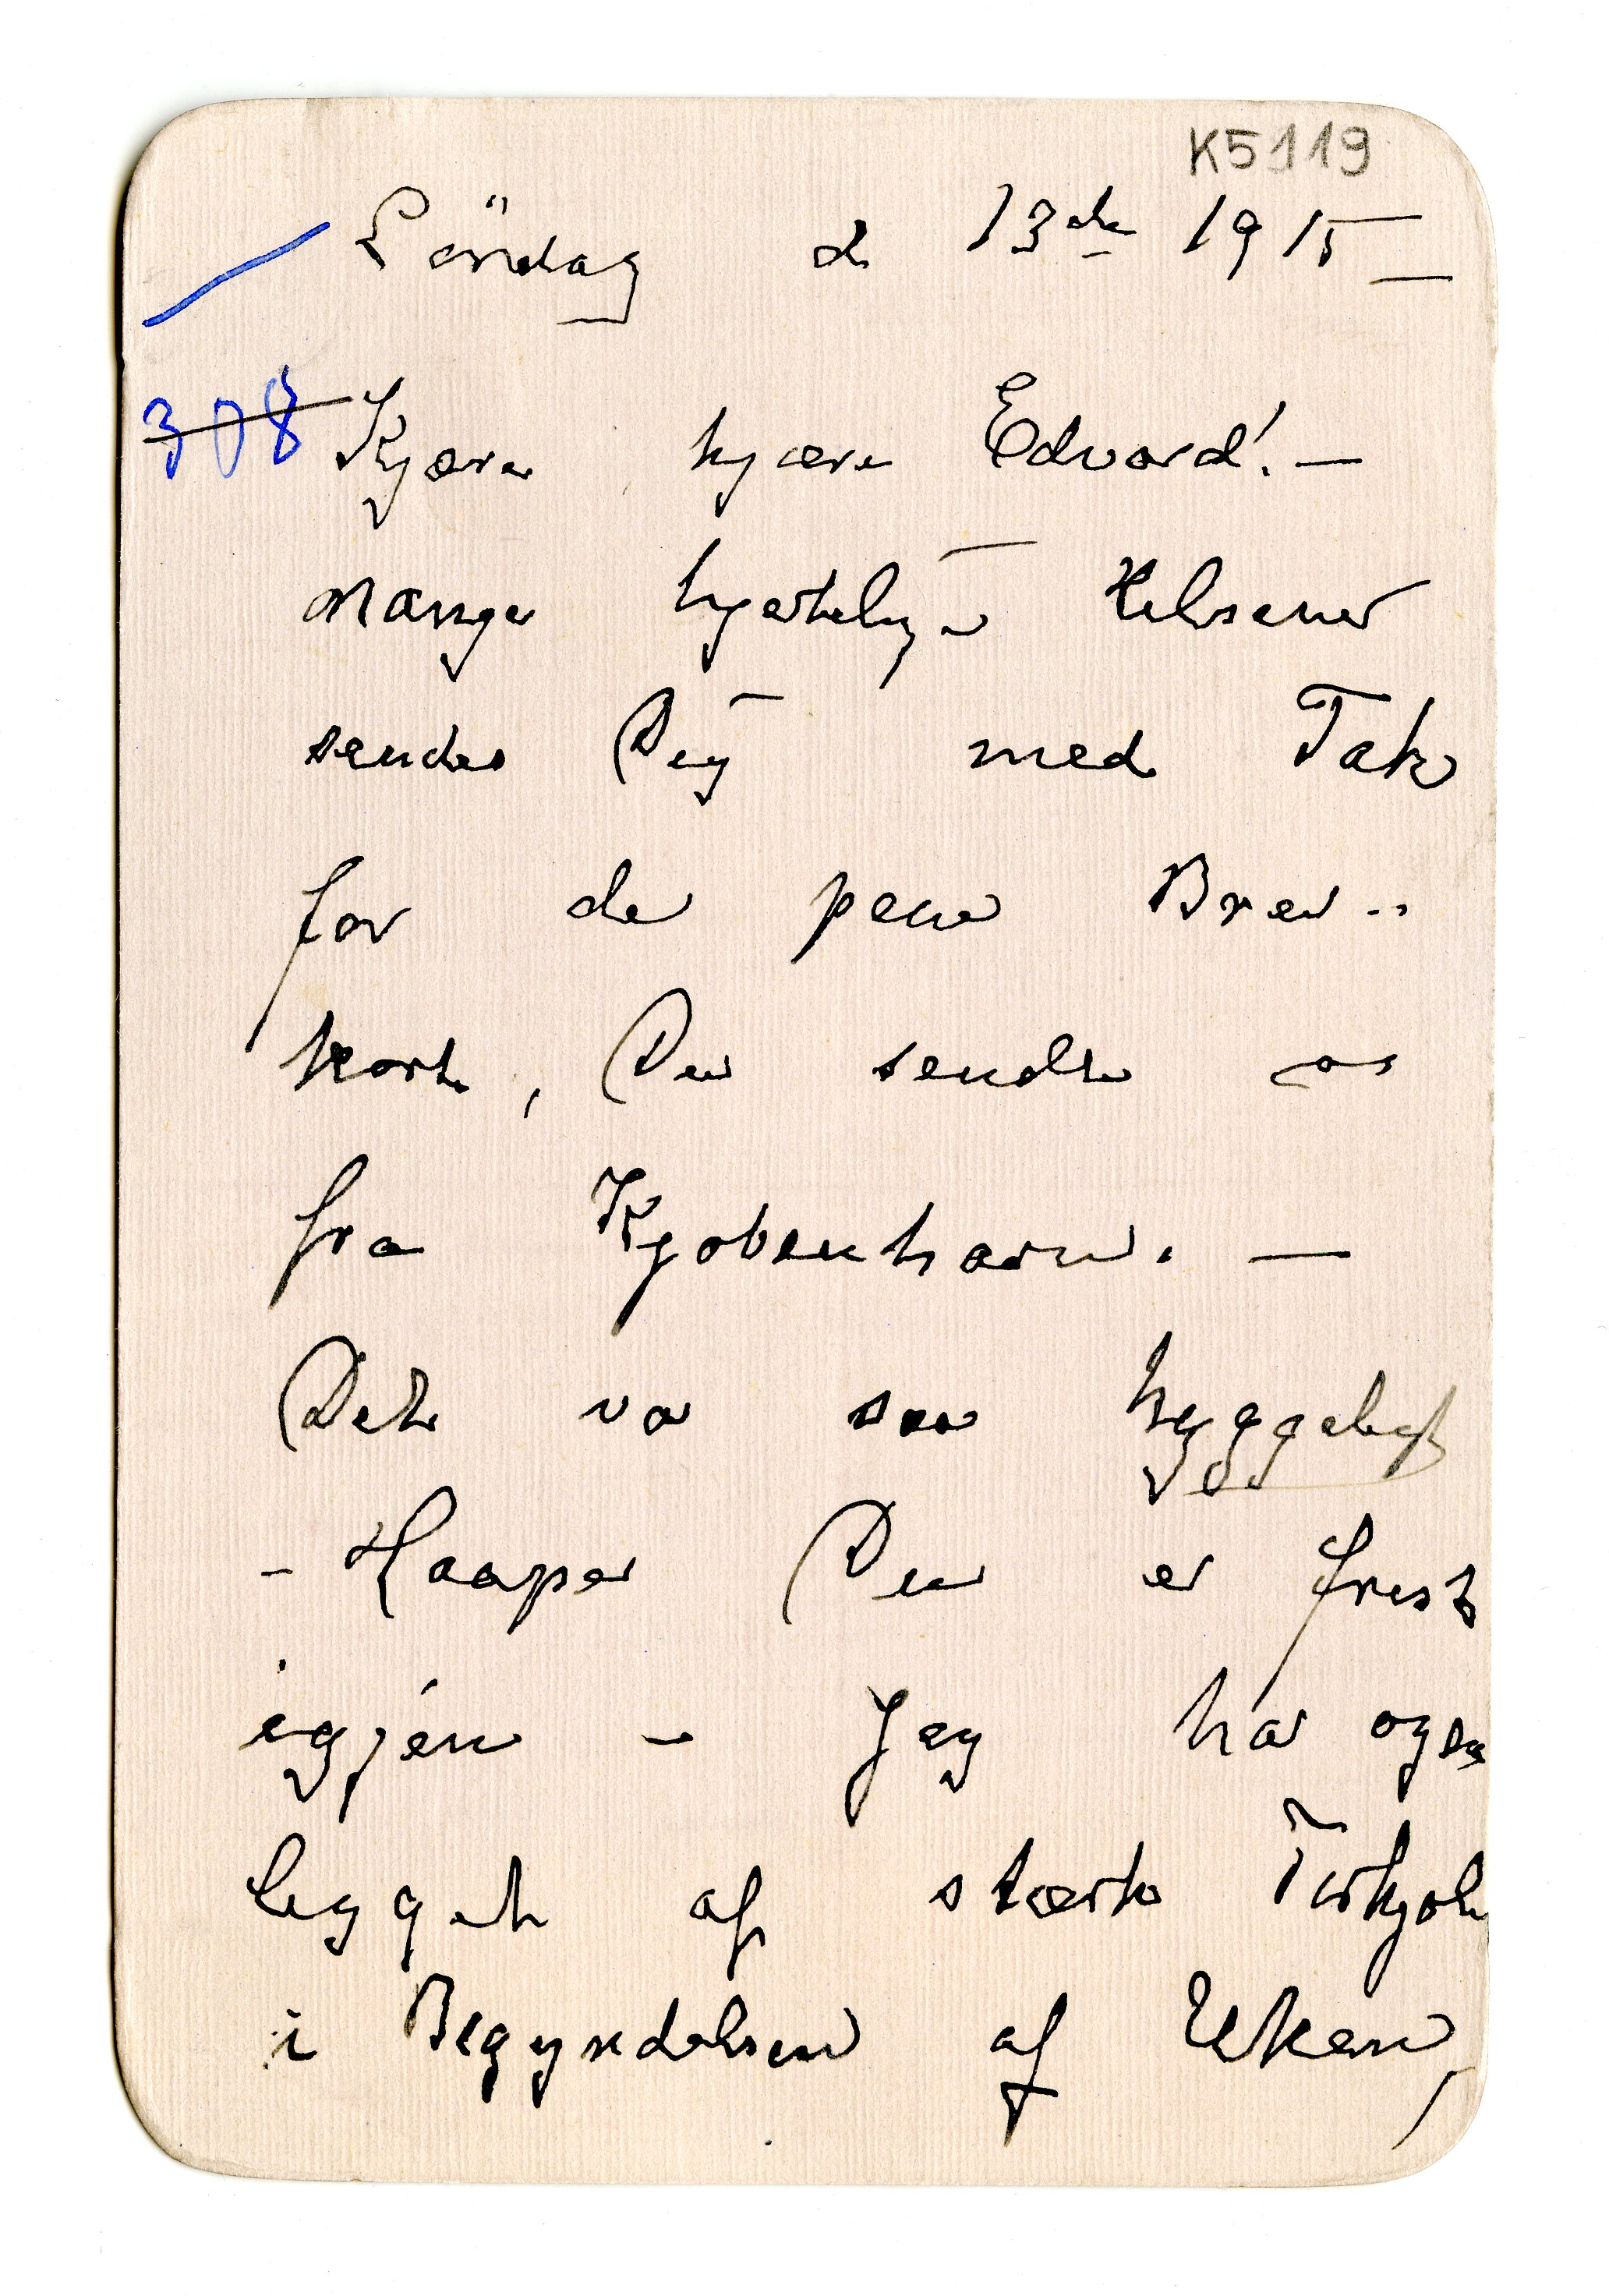 K5119
Löndag d 13de 1915 —
308 Kjære kjære Edvard! —
mange hjertelige Helsener
sendes Dig med Tak
for de pene Brev-
kort, Du sendte os
fra Kjøbenhavn. —
Det va saa hyggeligt
- Haaper Du er frisk
igjen - Jeg har ogsa
ligget af stærk Forkjøle
i Begyndelsen af Uken,